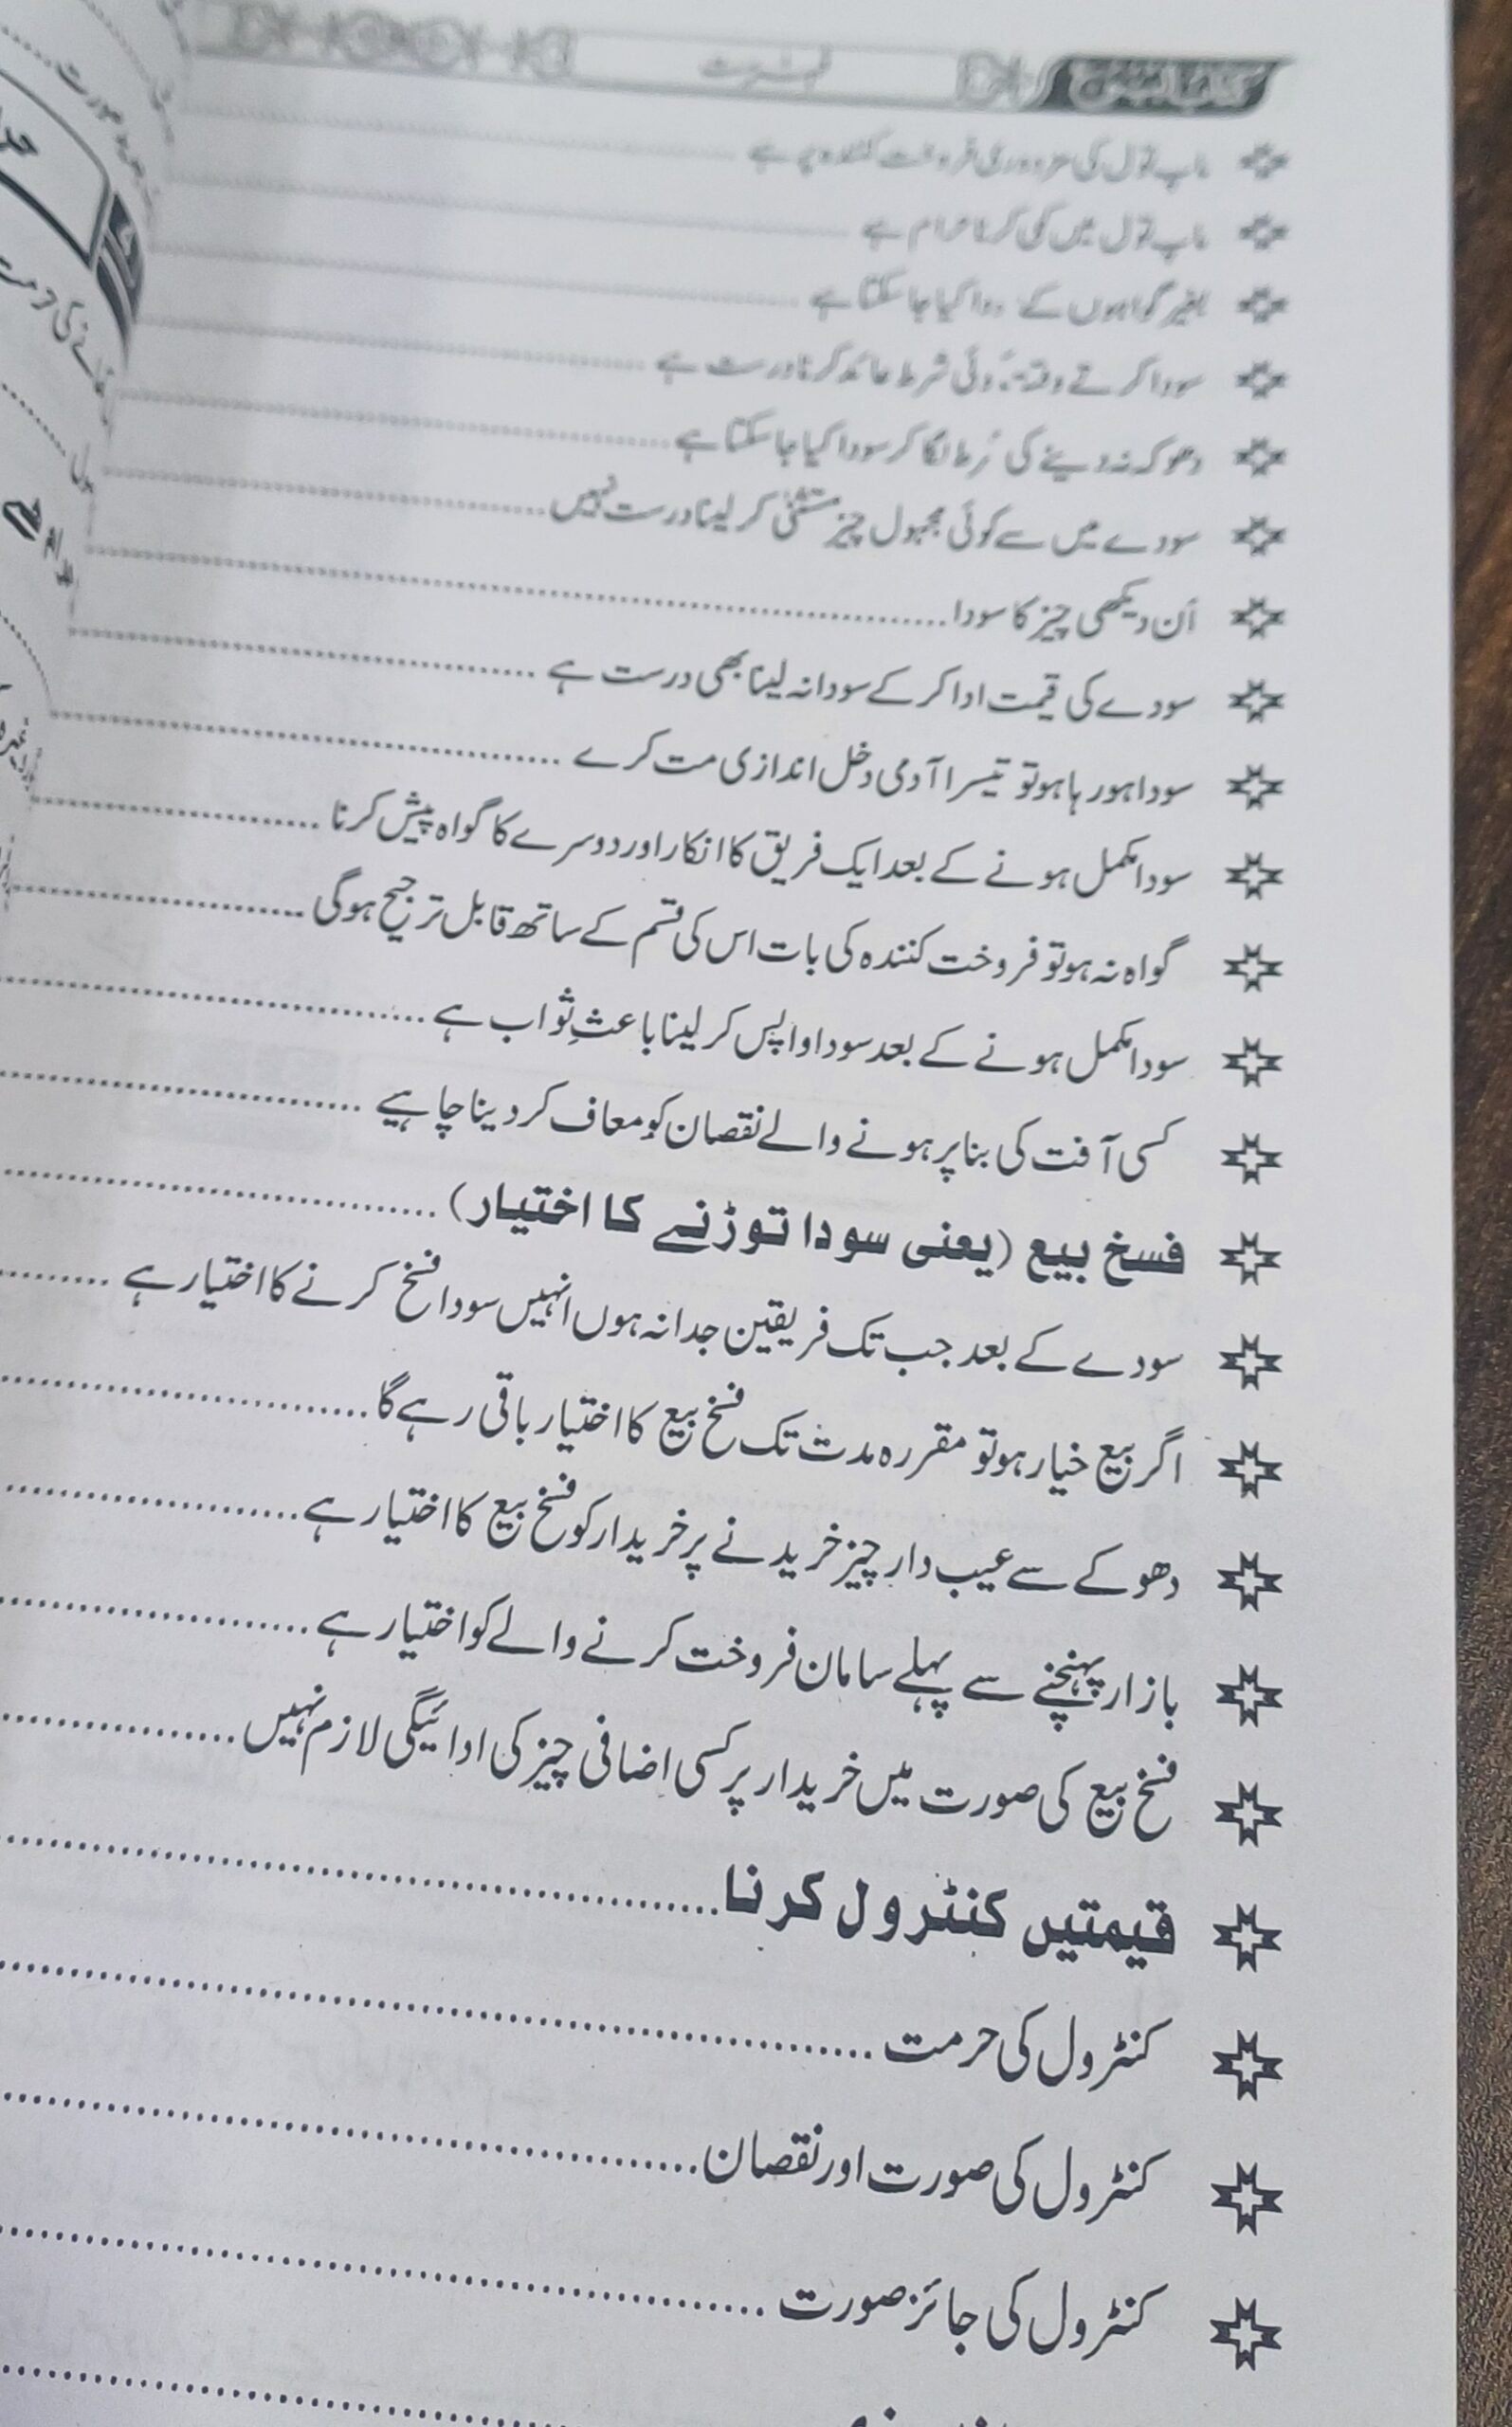 فہرست
ماپ تول کی مزدوری فروخت کنندہ پر ہے
ماپ تول میں کمی کرنا حرام ہے
بغیر گواہوں کے سودا کیا جا سکتا ہے
سودا کرتے وقت کوئی شرط عائد کرنا درست ہے
دھوکہ نہ دینے کی شرط لگا کر سودا کیا جا سکتا ہے
سودے میں سے کوئی مجہول چیز مستثنیٰ کر لینا درست نہیں
اَن دیکھی چیز کا سودا
سودے کی قیمت ادا کر کے سودا نہ لینا بھی درست ہے
سودا ہو رہا ہو تو تیسرا آدمی دخل اندازی مت کرے
سودا مکمل ہونے کے بعد ایک فریق کا انکار اور دوسرے کا گواہ پیش کرنا
گواہ نہ ہو تو فروخت کنندہ کی بات اس کی قسم کے ساتھ قابل ترجیح ہو گی
سودا مکمل ہونے کے بعد سودا واپس کر لینا باعثِ ثواب ہے
کسی آفت کی بنا پر ہونے والے نقصان کو معاف کر دینا چاہیے
فسخ بیع (یعنی سودا توڑنے کا اختیار)
سودے کے بعد جب تک فریقین جدا نہ ہوں انہیں سودا فسخ کرنے کا اختیار ہے
اگر بیع خیار ہو تو مقررہ مدت تک فسخ بیع کا اختیار باقی رہے گا
دھوکے سے عیب دار چیز خریدنے پر خریدار کو فسخ بیع کا اختیار ہے
بازار پہنچنے سے پہلے سامان فروخت کرنے والے کو اختیار ہے
فسخ بیع کی صورت میں خریدار پر کسی اضافی چیز کی ادائیگی لازم نہیں
قیمتیں کنٹرول کرنا
کنٹرول کی حرمت
کنٹرول کی صورت اور نقصان
کنٹرول کی جائز صورت